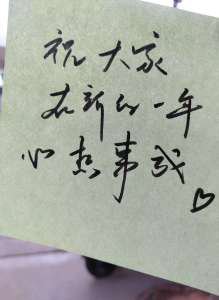 祝大家
在新的一年
心想事成